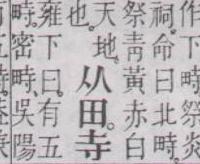 作下畤炎
祠命曰北畤
祭青黃赤白
天地。
也。
从田寺
雍下曰有五
畤密畤吳陽